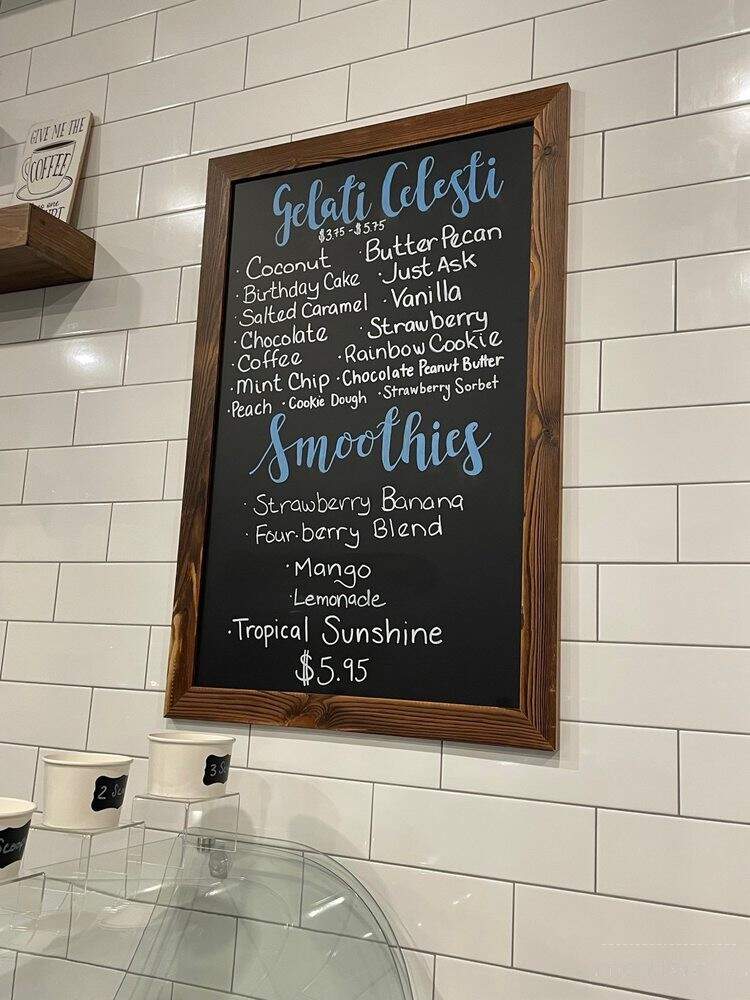 GIVE ME THE
COFFEE
Gelati Celesti
$3.75 - $5.75
· Coconut · Butter Pecan
· Birthday Cake · Just Ask
· Salted Caramel · Vanilla
· Chocolate · Strawberry
· Coffee · Rainbow Cookie
· Mint Chip · Chocolate Peanut Butter
· Peach · Cookie Dough · Strawberry Sorbet
Smoothies
· Strawberry Banana
· Four-berry Blend
· Mango
· Lemonade
· Tropical Sunshine
$5.95
3
2